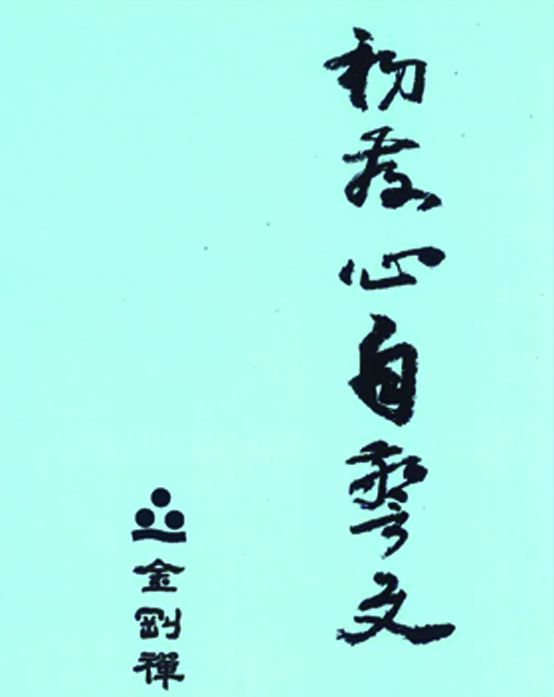 初發心自警文
金剛禪